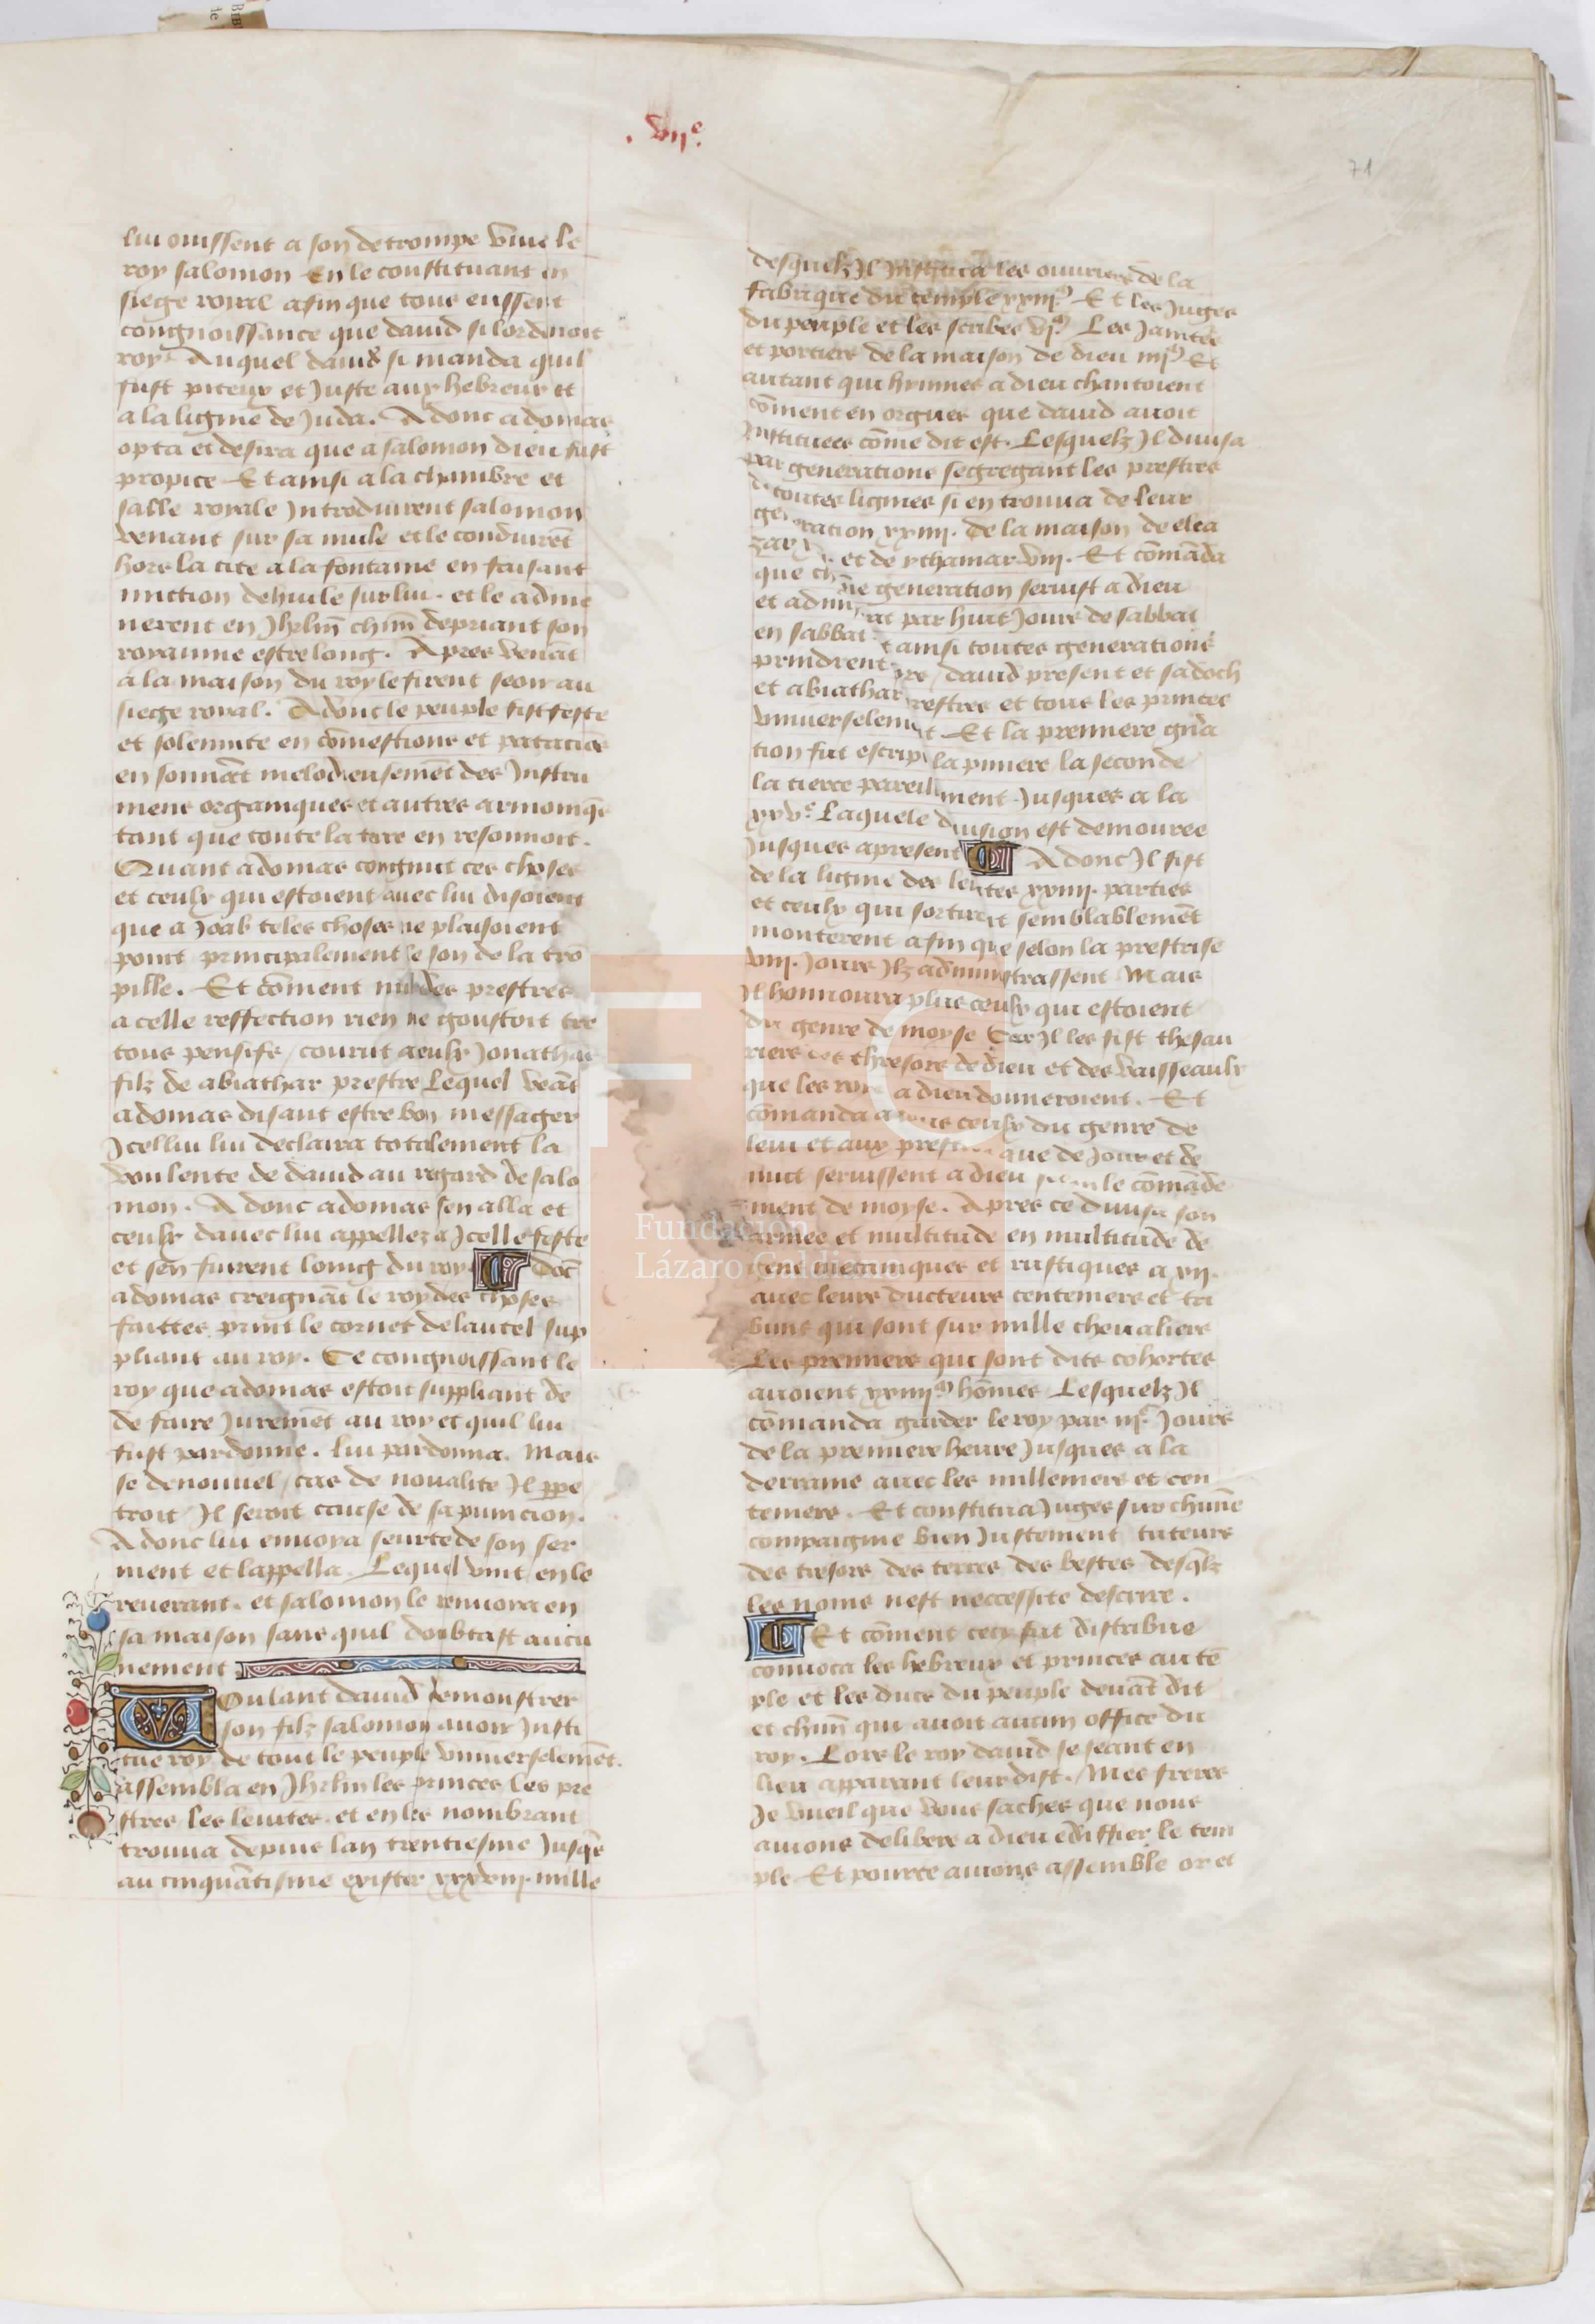 .vii^e.
71
lui ouissent a son de trompe vive le
roy salomon En le constituant en
siege roial afin que tous eussent
congnoissance que david si lordenoit
roy. Auquel david si manda quil
fust piteux et Juste aux hebreux et
a la lignie de Juda. Adonc adomas
opta et desira que a salomon dieu fust
propice Et ainsi a la chambre et
salle royale Introduirent salomon
venant sur sa mule et le conduirēt
hors la cite a la fontaine en faisant
unction dehuile sur lui. et le adme
nerent en Jhrlm̄ chūn depriant son
royaume estre long. Apres venāt
a la maison du roy le firent seoir au
siege royal. Adonc le peuple fist feste
et solennite en cōmestions et potacions
en sonnāt melodieusemēt des Instru
mens organiques et autres armoniq̄s
tant que toute la terre en resonnoit.
Quant adomas congnut ces choses
et ceulx qui estoient avec lui disoient
que a Joab teles choses ne plaisoient
point principalement le son de la trō
pille. Et cōment nul des prestres
a celle reffection rien ne goustoit tre
tous pensifs / courut a eulx Jonathas
filz de abiathar prestre Lequel veāt
adomas disant estre bon messager
Jcellui lui declaira totalement la
voulente de david au regard de salo
mon. Adonc adomas sen alla et
ceulx davec lui appellez a Jcelle feste
et sen fuirent loing du roy Adōc
adomas creignāt le roy des choses
faittes print le cornet de lautel sup
pliant au roy. Ce congnoissant le
roy que adomas estoit suppliant de
de faire Juremēt au roy et quil lui
fust pardonne. lui pardonna. Mais
se denouvel / cas de novalite Il ppe
troit Il seroit cause de sa punicion.
Adonc lui envoya seurte de son ser
ment et lappella. Lequel vint en le
reverant. et salomon le renvoia en
sa maison sans quil doubtast aucu
nement
Voulant david demonstrer
son filz salomon avoir Insti
tue roy de tout le peuple universelemēt.
assembla en Jhrlm les princes les pre
stres les levites. et en les nombrant
trouva depuis lan trentiesme Jusq̄s
au cinquātisme exister xxxviii. mille
desquelz Il Institua les ouvriers de la
fabrique du temple xxiii^m. Et les Juges
du peuple et les scribes vi^m. Les Janites
et portiers de la maison de dieu iiii^m Et
autant qui hymnes a dieu chantoient
cōment en orgues que david avoit
Instituees cōme dit est. Lesquelz Il divisa
par generations segregant les prestres
de toutes lignies si en trouva de leur
generation xxiiii. de la maison de elea
zar et de ythamar viii. Et cōmāda
que chūne generation servist a dieu
et admi rat par huit Jours de sabbat
en sabbat et ainsi toutes generations
prindrent david present et sadoch
et abiathar prestres et tous les princes
universelement. Et la premiere gn̄a
tion fut escripte la pmiere la seconde
la tierce pareillement Jusques a la
xxv^e. Laquele division est demouree
Jusques apresent Adonc Il fist
de la lignie des levites xxiiii. parties
et ceulx qui sortirent semblablemēt
monterent afin que selon la prestrise
viii. Jours Ilz administrassent Mais
Il honnoura plus ceulx qui estoient
du genre de moyse Car Il les fist thesau
riers des thresors de dieu et des vaisseaulx
que les roys a dieu donneroient. Et
cōmanda a tous ceulx du genre de
levi et aux prestres que de Jour et de
nuit servissent a dieu le cōmāde
ment de moyse. Apres ce divisa son
armee et multitude en multitude de
gens mecaniques et rustiques a xii.
avec leurs ducteurs centeniers et tri
buns qui sont sur mille chevaliers
Les premiers qui sont dits cohortes
avoient xxiiii^m hōmes Lesquelz Il
cōmanda garder le roy par iii^c Jours
de la premiere heure Jusques a la
derraine avec les milleniers et cen
teniers. Et constitua Juges sur chūne
compaignie bien Justement tuteurs
des tresors des terres des bestes desq̄lz
les noms nest neccessite descrire.
Et cōment cecy fut distribue
convoca les hebreux et princes au tē
ple et les ducs du peuple devāt dit
et chūn qui avoit aucun office du
roy. Lors le roy david se seant en
lieu apparant leur dist. Mes freres
Je vueil que vous saches que nous
avions delibere a dieu ediffier le tem
ple Et pource avions assemble or et
Fundación
Lázaro Galdiano